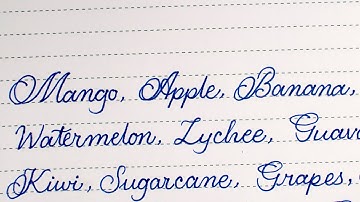 Mango, Apple, Banana,
Watermelon, Lychee, Guava
Kiwi, Sugarcane, Grapes,